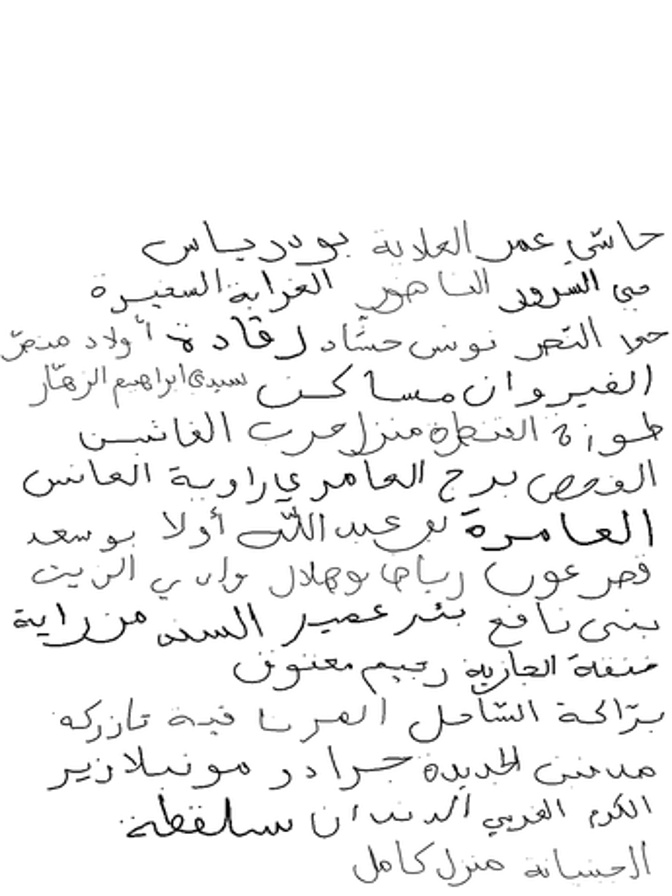 حاشي عمر العلاية بودرياس
حي السرور الناضور الغرابة السعيرة
حي النصر تونس حشاد رقادة أولاد منصر
القيروان مساكن سيدي ابراهيم الزهار
طوزة القنطرة منزل حرب الغانس
الفحص برج العامري زاوية الغانس
العامرة بوعبدالله أولا بوسعد
قصر عون رباح بوهلال وادي الزيت
بني نافع بئر عمير السند مزراية
خنقة الجازية رحيم معتوق
برّاكة السّاحل العرنا قبة تازركه
مدنين الجديدة جرادر مونبلازير
الكرم الغربي الدندان سلقطة
الجبنيانة منزل كامل